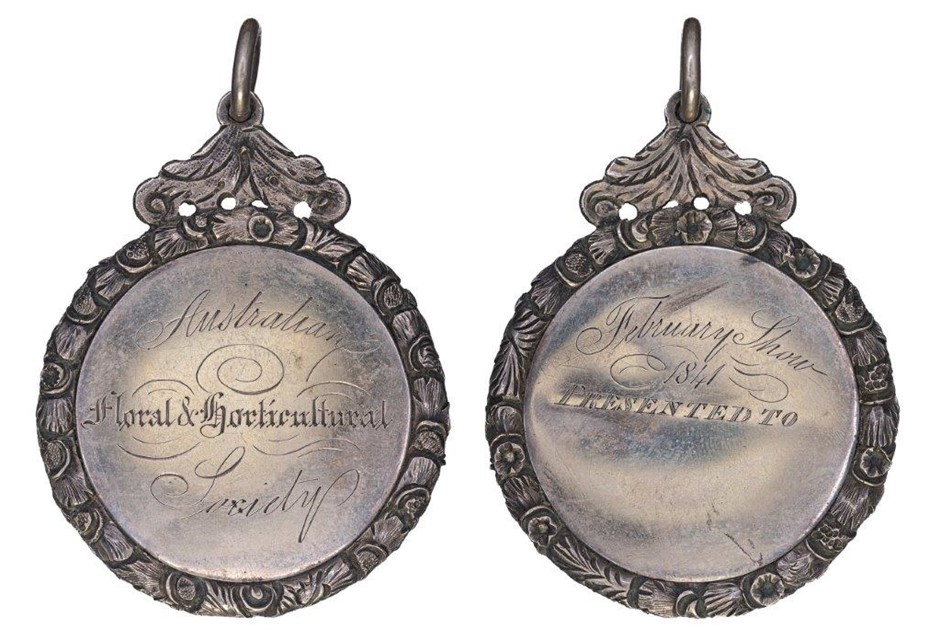 Australian
Floral & Horticultural
Society
February Show
1841
PRESENTED TO